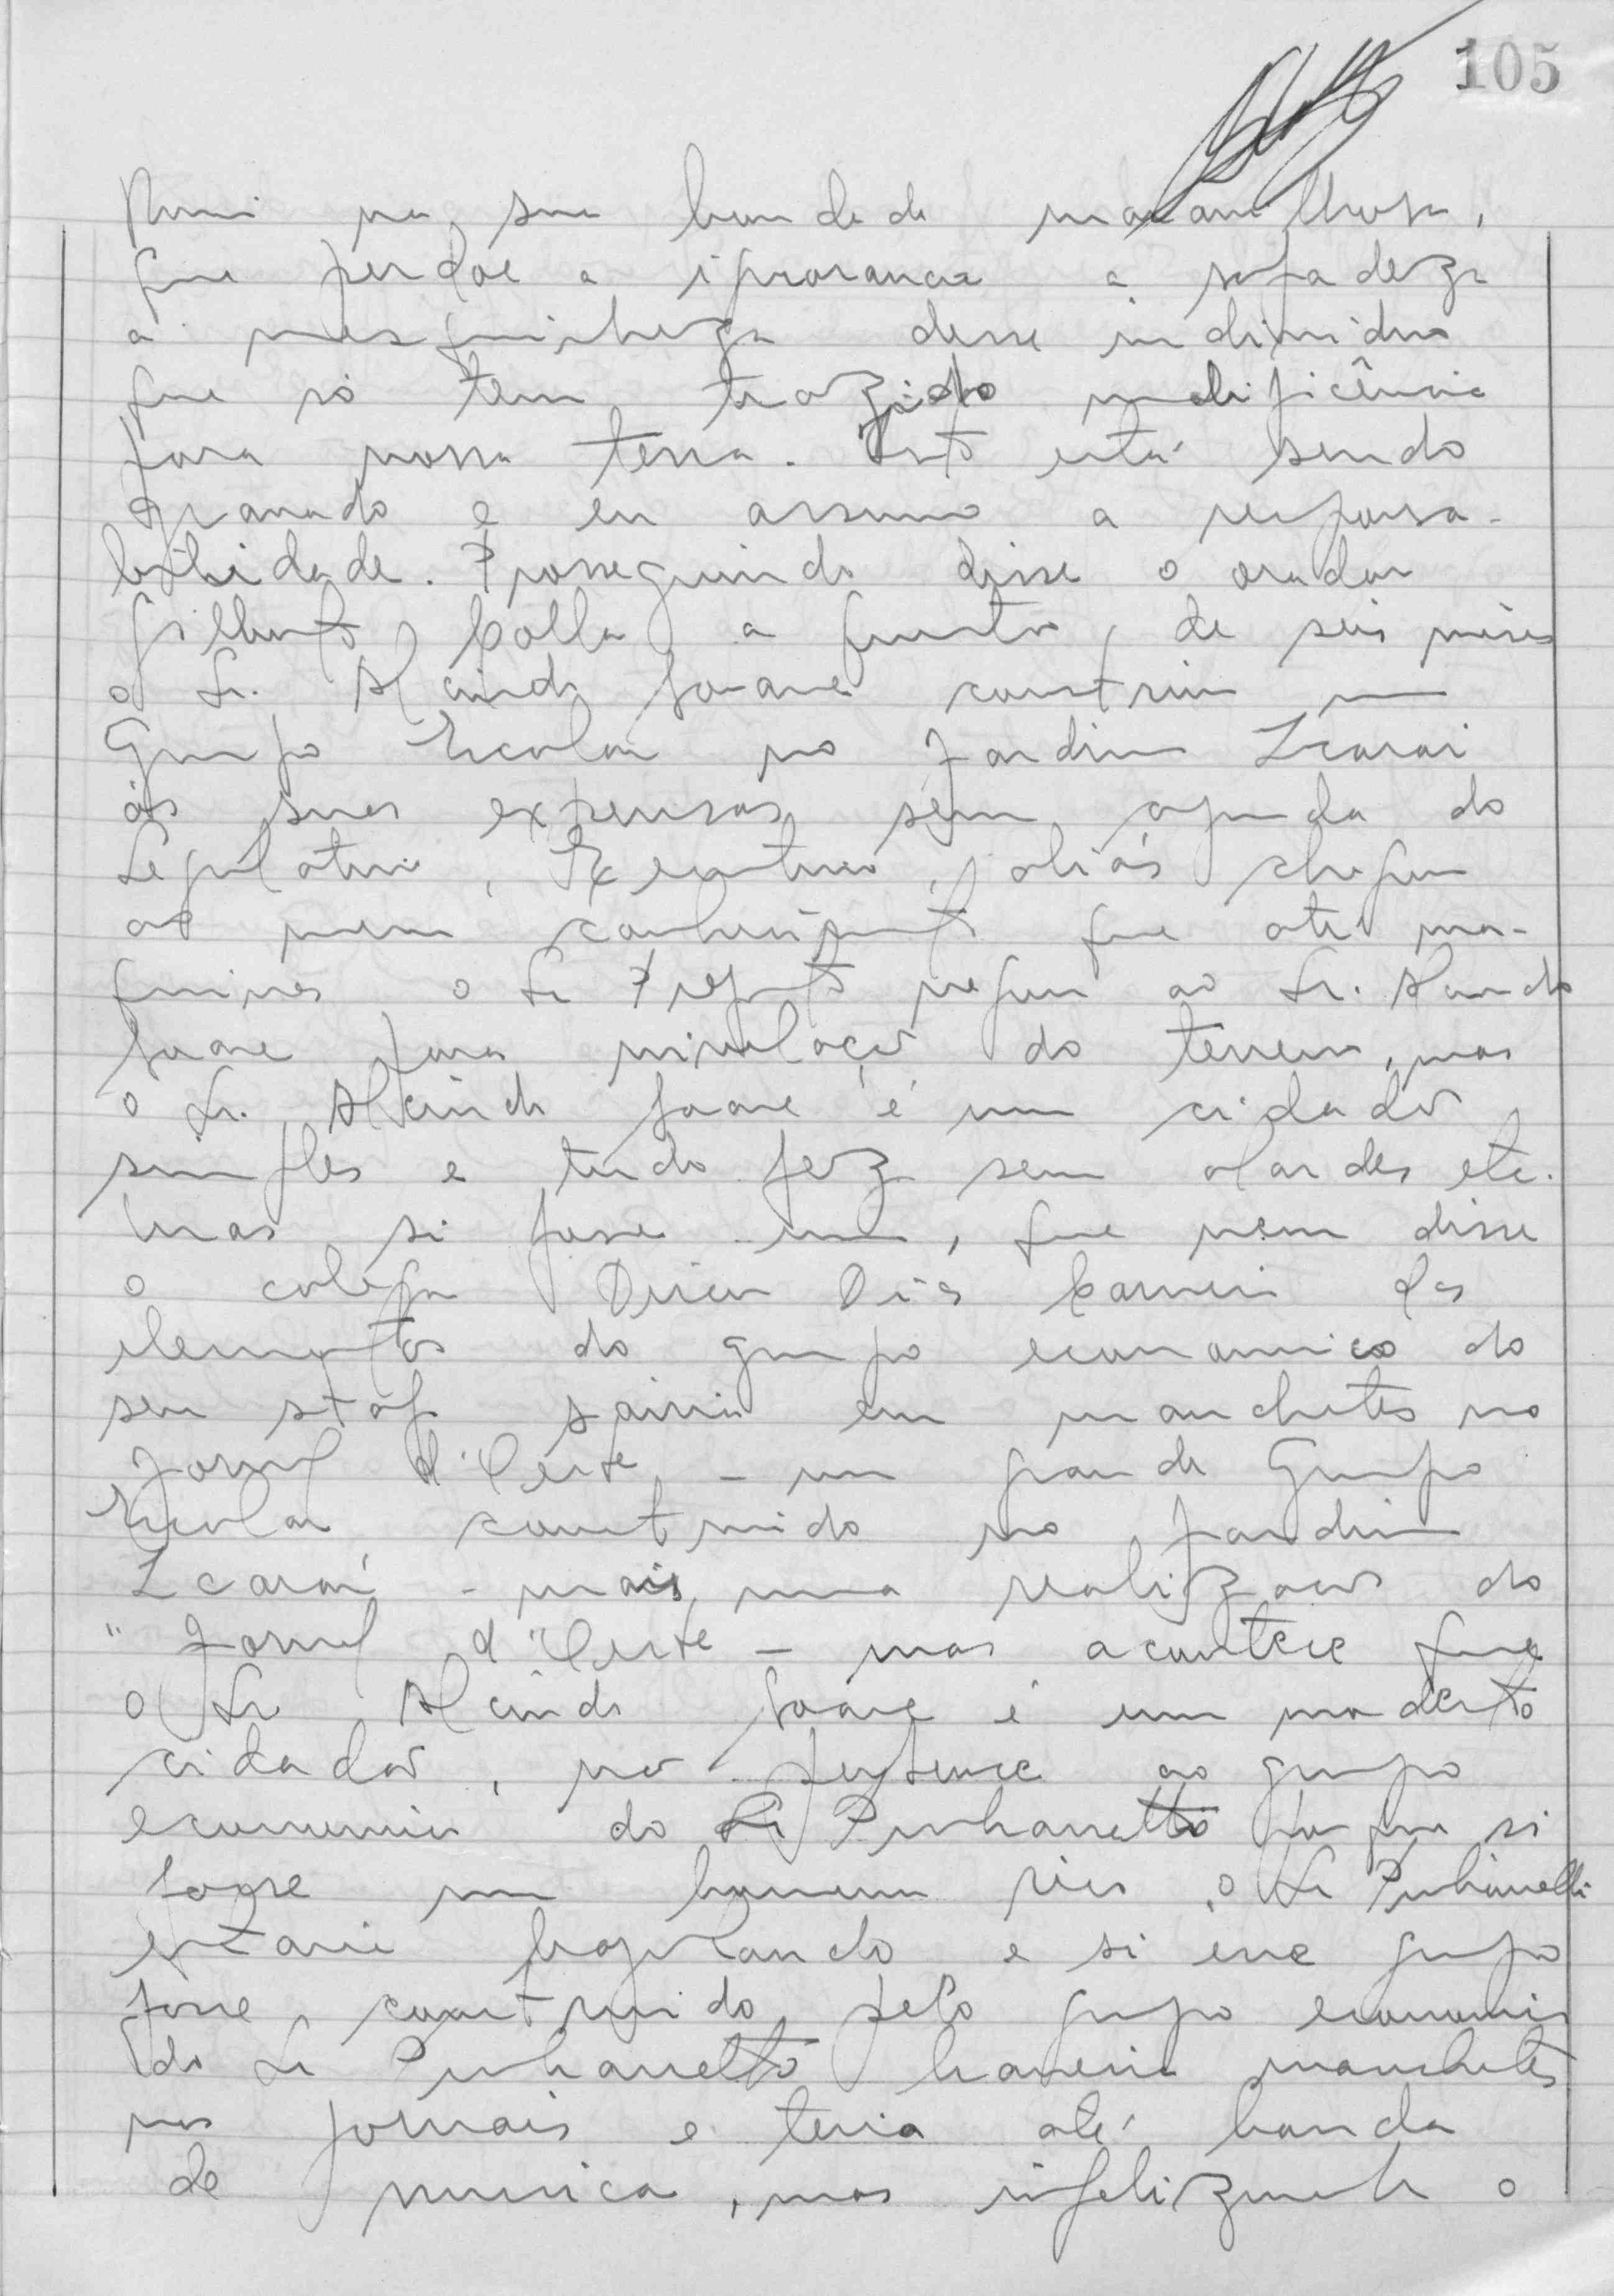 105
na sua bondade maravilhosa,
que perdoe a ignorancia a safadeza
a mesquinheza desse individuo
que só tem trazido maleficência
para nossa terra. Isto está sendo
gravado e eu assumo a responsa-
bilidade. Prosseguindo disse o orador
Gilberto Colla a questão, de seis mêses
o Sr. Alcindo construiu um
Grupo Escolar no Jardim Icarai
ás suas expensas sem ajuda do
Legislativo, Executivo, aliás chegou
ao meu conhecimento que até ma-
quinas o Sr Prefeito negou ao Sr. Alcindo
para nivelação do terreno, mas
o Sr. Alcindo é um cidadão
simples e tudo fez sem alardes etc.
Mas si fosse um, que nem disse
o colega Dirceu Dias Carneiro dos
elementos do grupo economico do
seu staf sairia em manchetes no
Jornal d'Oeste - um grande Grupo
Escolar construido no Jardim
Icaraí - mais uma realização do
"Jornal d'Oeste - mas acontece que
o Sr Alcindo é um modesto
cidadão, não pertence ao grupo
economico do Sr porque si
fosse um homem rico, o Sr
estaria bajulando e si esse grupo
fosse construido pelo grupo economico
do Sr haveria manchetes
nos jornais e teria até banda
de musica, mas infelizmente o